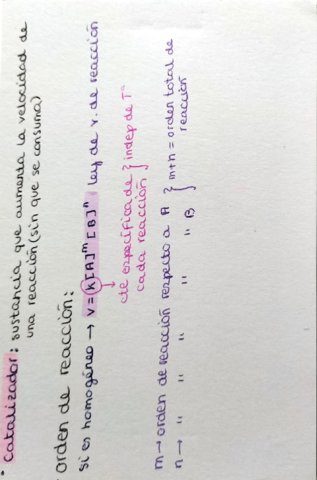 · Catalizador: sustancia que aumenta la velocidad de
una reacción (sin que se consuma)
· orden de reacción:
si es homogéneo → v = k[A]^m [B]^n ley de v. de reacción
cte específica de } indep de Tª
cada reacción
m → orden de reacción respecto a A } m+n = orden total de
n → " " " " " B reacción